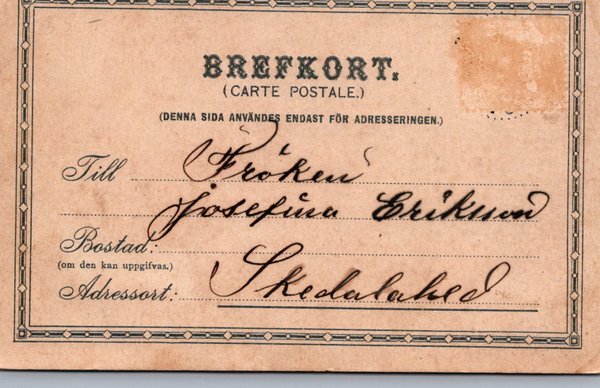 BREFKORT.
(CARTE POSTALE.)
(DENNA SIDA ANVÄNDES ENDAST FÖR ADRESSERINGEN.)
Till Fröken
Josefina Eriksson
Bostad:
(om den kan uppgifvas.)
Adressort: Skedalahed